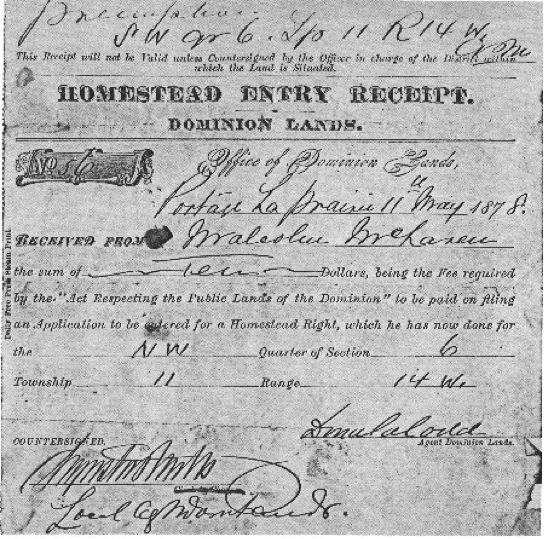 Preemption
SW qr 6. Tp 11 R 14 W.
This Receipt will not be Valid unless Countersigned by the Officer in charge of the District within
which the Land is Situated.
HOMESTEAD ENTRY RECEIPT.
DOMINION LANDS.
No. 56
Office of Dominion Lands,
Portage La Prairie 11 May 1878.
RECEIVED FROM Malcolm McLaren
the sum of Ten Dollars, being the Fee required
by the "Act Respecting the Public Lands of the Dominion" to be paid on filing
an Application to be entered for a Homestead Right, which he has now done for
the NW Quarter of Section 6
Township 11 Range 14 W.
COUNTERSIGNED,
Agent Dominion Lands.
Local Ag Dom Lands.
Daily Free Press Steam Print.